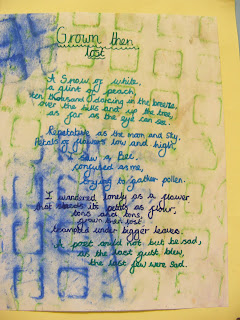 Grown then
lost
A Snow of white,
a glint of peach,
ten thousand dancing in the breeze,
over the hills and up the tree,
as far as the eye can see.
Repetative as the moon and sky,
Petals of flowers low and high.
I saw a Bee,
confused as me,
trying to gather pollen.
I wandered lonely as a flower
that its petals as flour,
tons and tons,
grown then lost
trampled under bigger leaves.
A poet could not but be sad,
as the last gust blew,
the last few were sad.